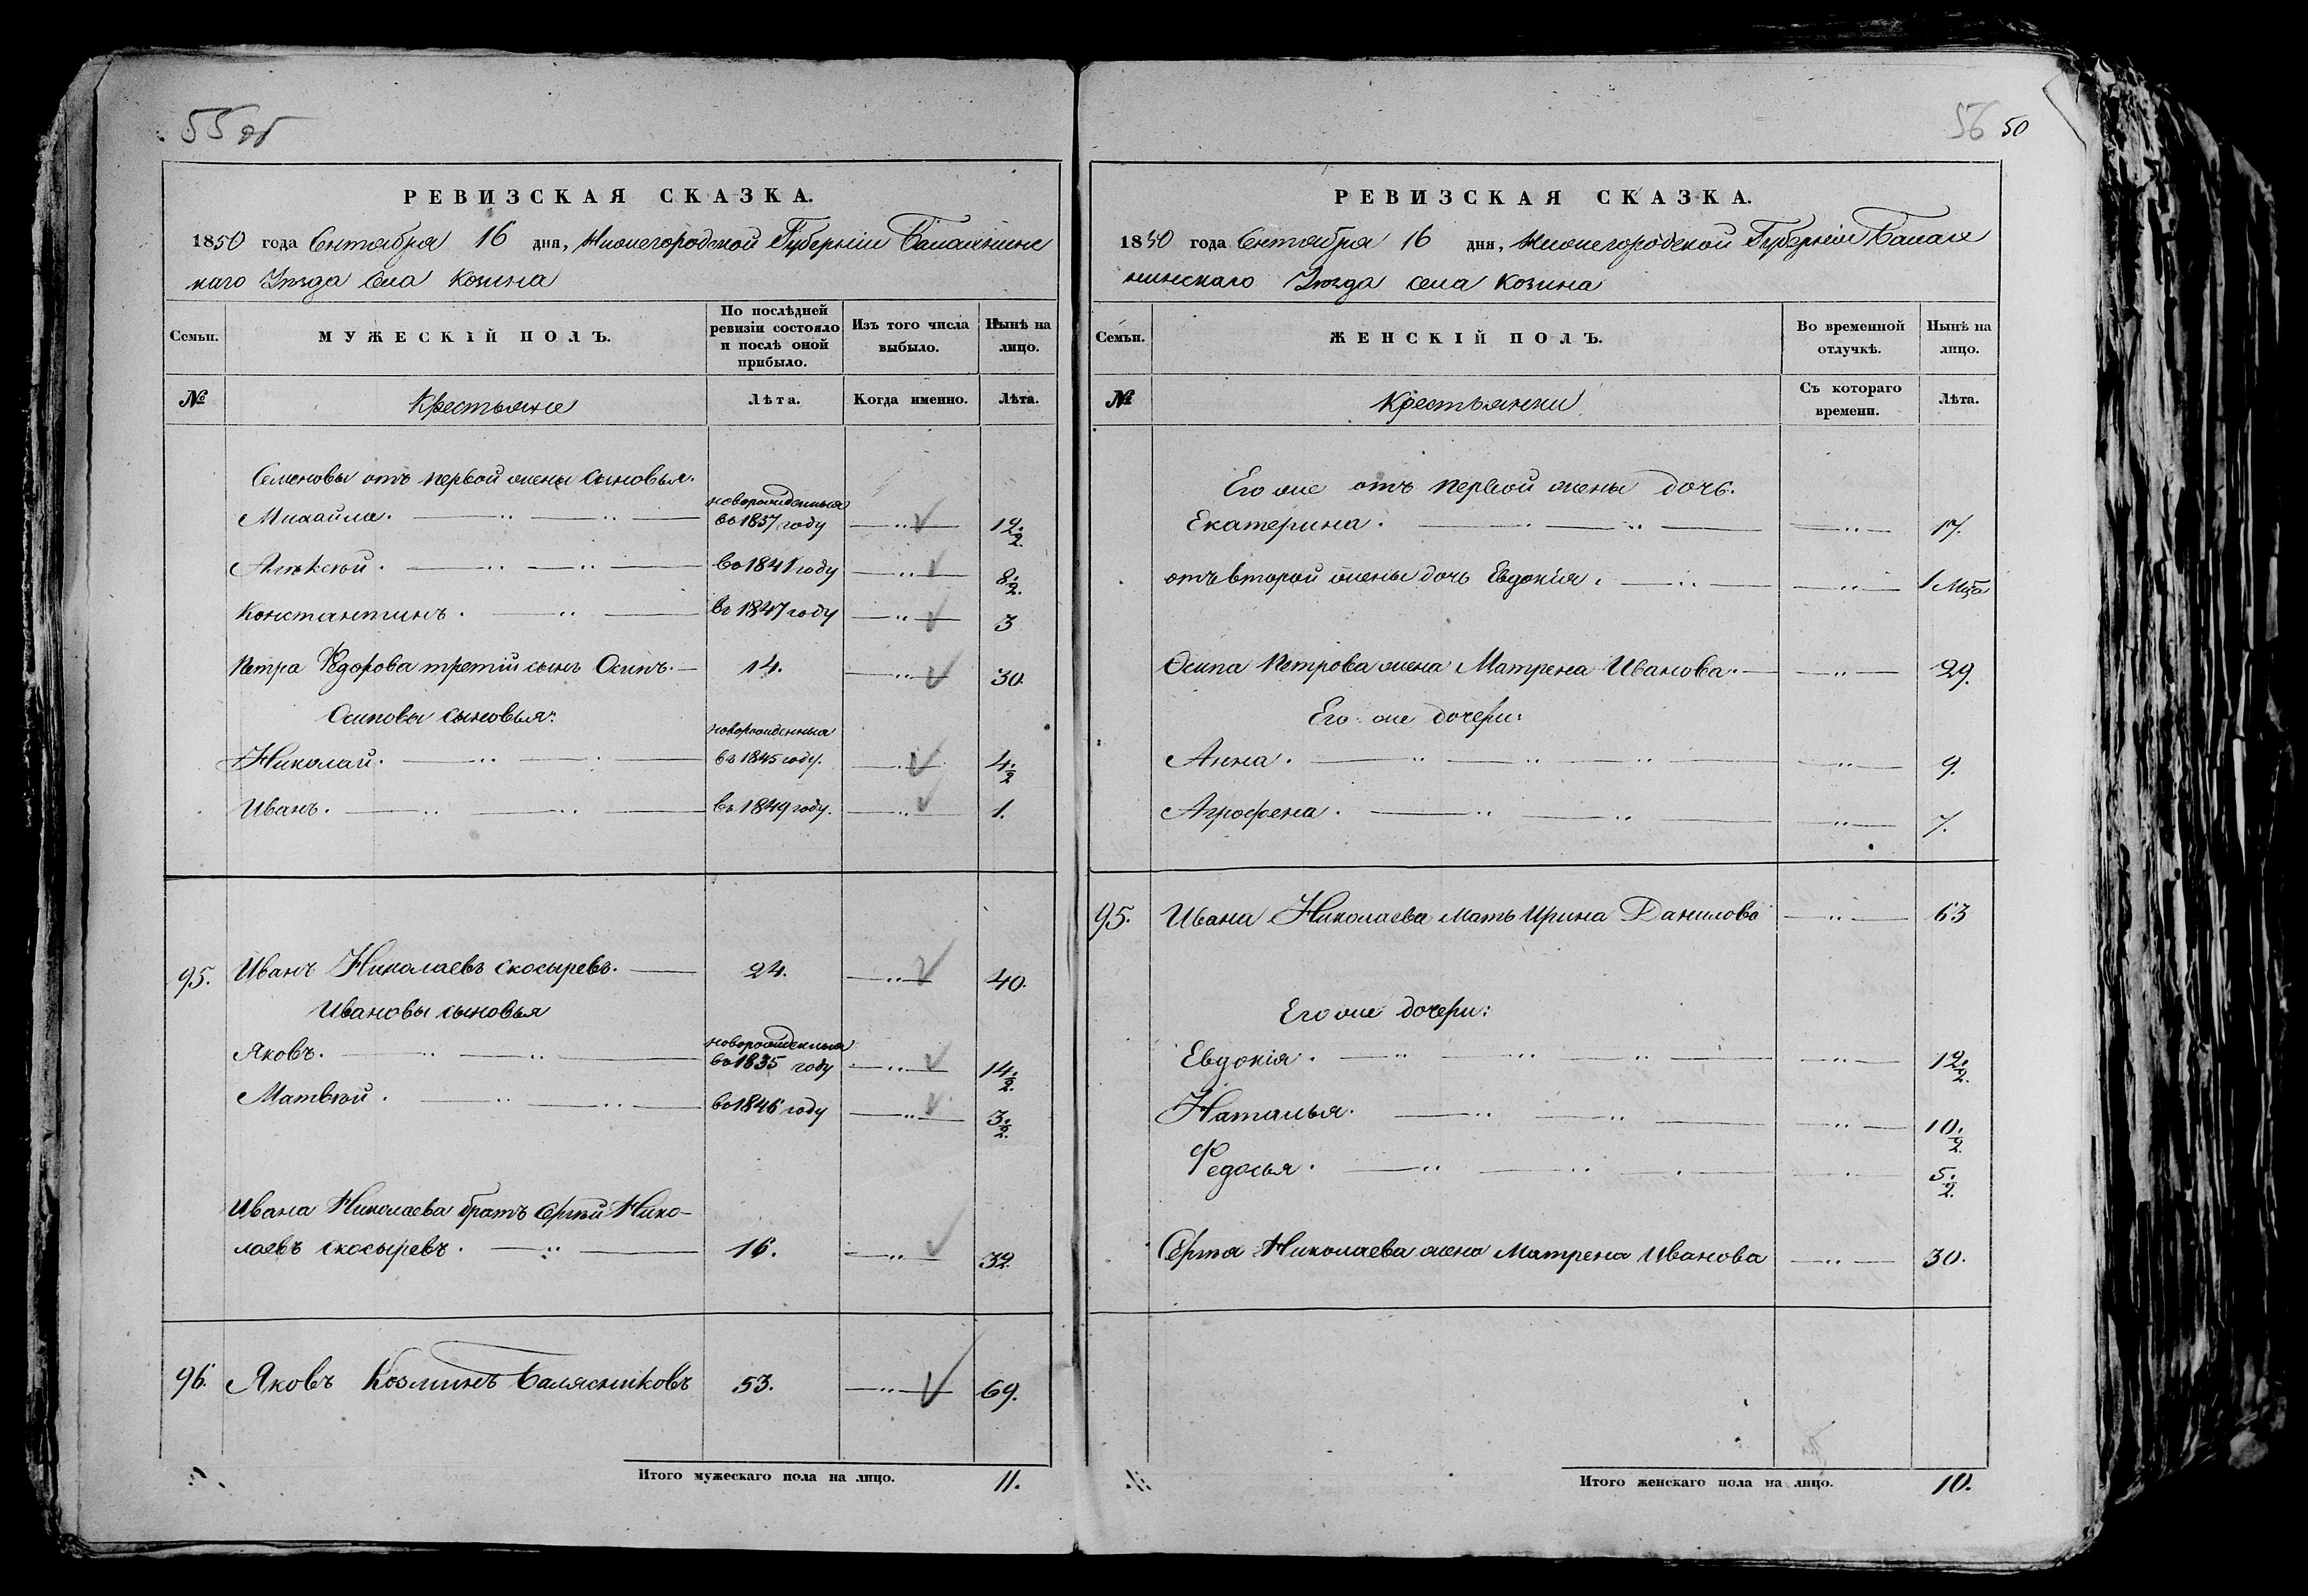 55 об
РЕВИЗСКАЯ СКАЗКА.
1850 года Сентября 16 дня, Нижегородской Губернiи Балахнинс
каго Уѣзда Села Козина
Семьи. МУЖЕСКIЙ ПОЛЪ. По послѣдней ревизiи состояло и послѣ оной прибыло. Изъ того числа выбыло. Нынѣ на лицо.
№ Крестьяне Лѣта. Когда именно. Лѣта.
Семеновы отъ первой жены сыновья.
Михайла. новорожденныя во 1837 году 12 1/2.
Алѣксѣй. во 1841 году 8 1/2.
Константинъ. въ 1847 году 3
Петра Федорова третiй сынъ Осипъ. 14. 30.
Осиповы сыновья:
Николай. новорожденныя въ 1845 году. 4 1/2
Иванъ. въ 1849 году. 1.
95. Иванъ Николаевъ Скосыревъ. 24. 40.
Ивановы сыновья
Яковъ. новорожденныя во 1835 году 14 1/2.
Матвѣй. во 1846 году 3 1/2.
Ивана Николаева братъ Сергѣй Нико-
лаевъ Скосыревъ. 16. 32.
96. Яковъ Козминъ Балясниковъ 53. 69.
Итого мужескаго пола на лицо. 11.
56 50
РЕВИЗСКАЯ СКАЗКА.
1850 года Сентября 16 дня, Нижегородской Губернiи Балах
нинскаго Уѣзда села Козина
Семьи. ЖЕНСКIЙ ПОЛЪ. Во временной отлучкѣ. Нынѣ на лицо.
№ Крестьянки Съ котораго времени. Лѣта.
Его же отъ первой жены дочь.
Екатерина. 17.
отъ второй жены дочь Евдокiя. 1 Мца
Осипа Петрова жена Матрена Иванова. 29.
Его же дочери:
Анна. 9.
Агрофена. 7.
95. Ивана Николаева мать Ирина Данилова 63
Его же дочери:
Евдокiя. 12 1/2.
Наталья. 10 1/2
Федосья. 5 1/2.
Сергѣя Николаева жена Матрена Иванова 30.
Итого женскаго пола на лицо. 10.